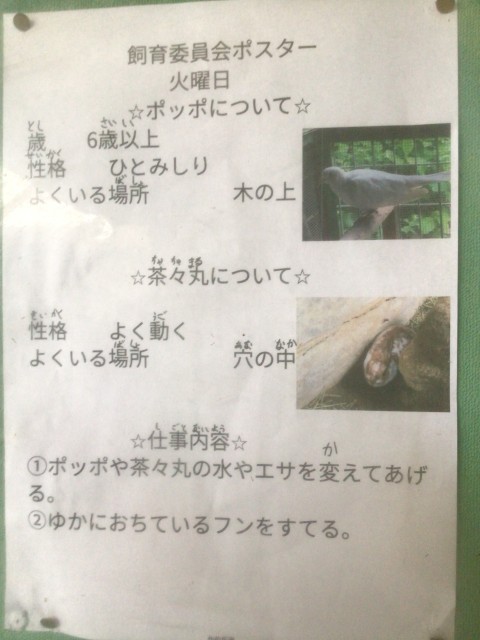 飼育委員会ポスター
火曜日
☆ポッポについて☆
とし さい い
歳 6歳以上
せいかく
性格 ひとみしり
ばしょ
よくいる場所 木の上
ちゃ ちゃ まる
☆茶々丸について☆
せいかく うご
性格 よく動く
ばしょ あな なか
よくいる場所 穴の中
し ごと ないよう
☆仕事内容☆
か
①ポッポや茶々丸の水やエサを変えてあげ
る。
②ゆかにおちているフンをすてる。